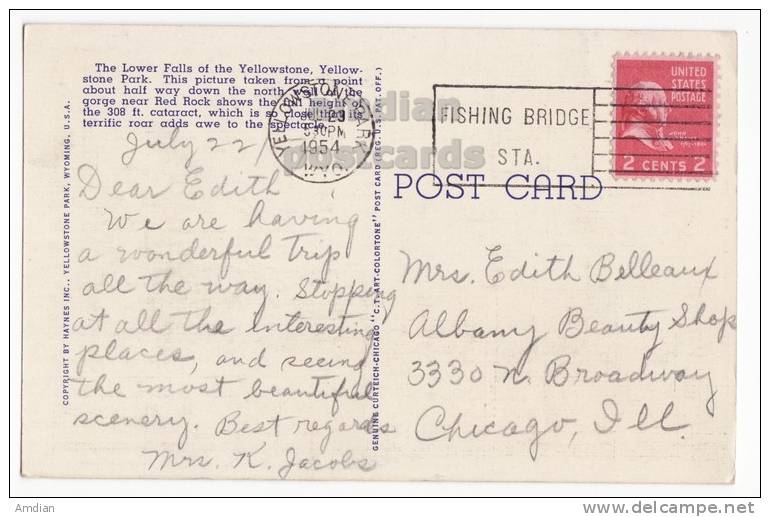 The Lower Falls of the Yellowstone, Yellow-
stone Park. This picture taken from a point
about half way down the north wall of the
gorge near Red Rock shows the full height of
the 308 ft. cataract, which is so close that its
terrific roar adds awe to the spectacle.
COPYRIGHT BY HAYNES INC., YELLOWSTONE PARK, WYOMING, U.S.A.
July 22/
Dear Edith
We are having
a wonderful trip
all the way. Stopping
at all the interesting
places, and seeing
the most beautiful
scenery. Best regards
Mrs. K. Jacobs
GENUINE CURTEICH-CHICAGO "C.T. ART-COLORTONE" POST CARD (REG. U.S. PAT. OFF.)
YELLOWSTONE PARK
JUL 23
530PM
1954
WYO.
FISHING BRIDGE
STA.
UNITED
STATES
POSTAGE
JOHN
2 CENTS 2
POST CARD
Mrs. Edith Belleaux
Albany Beauty Shop
3330 N. Broadway
Chicago, Ill.
amdian
postcards
Amdian
delcampe.net